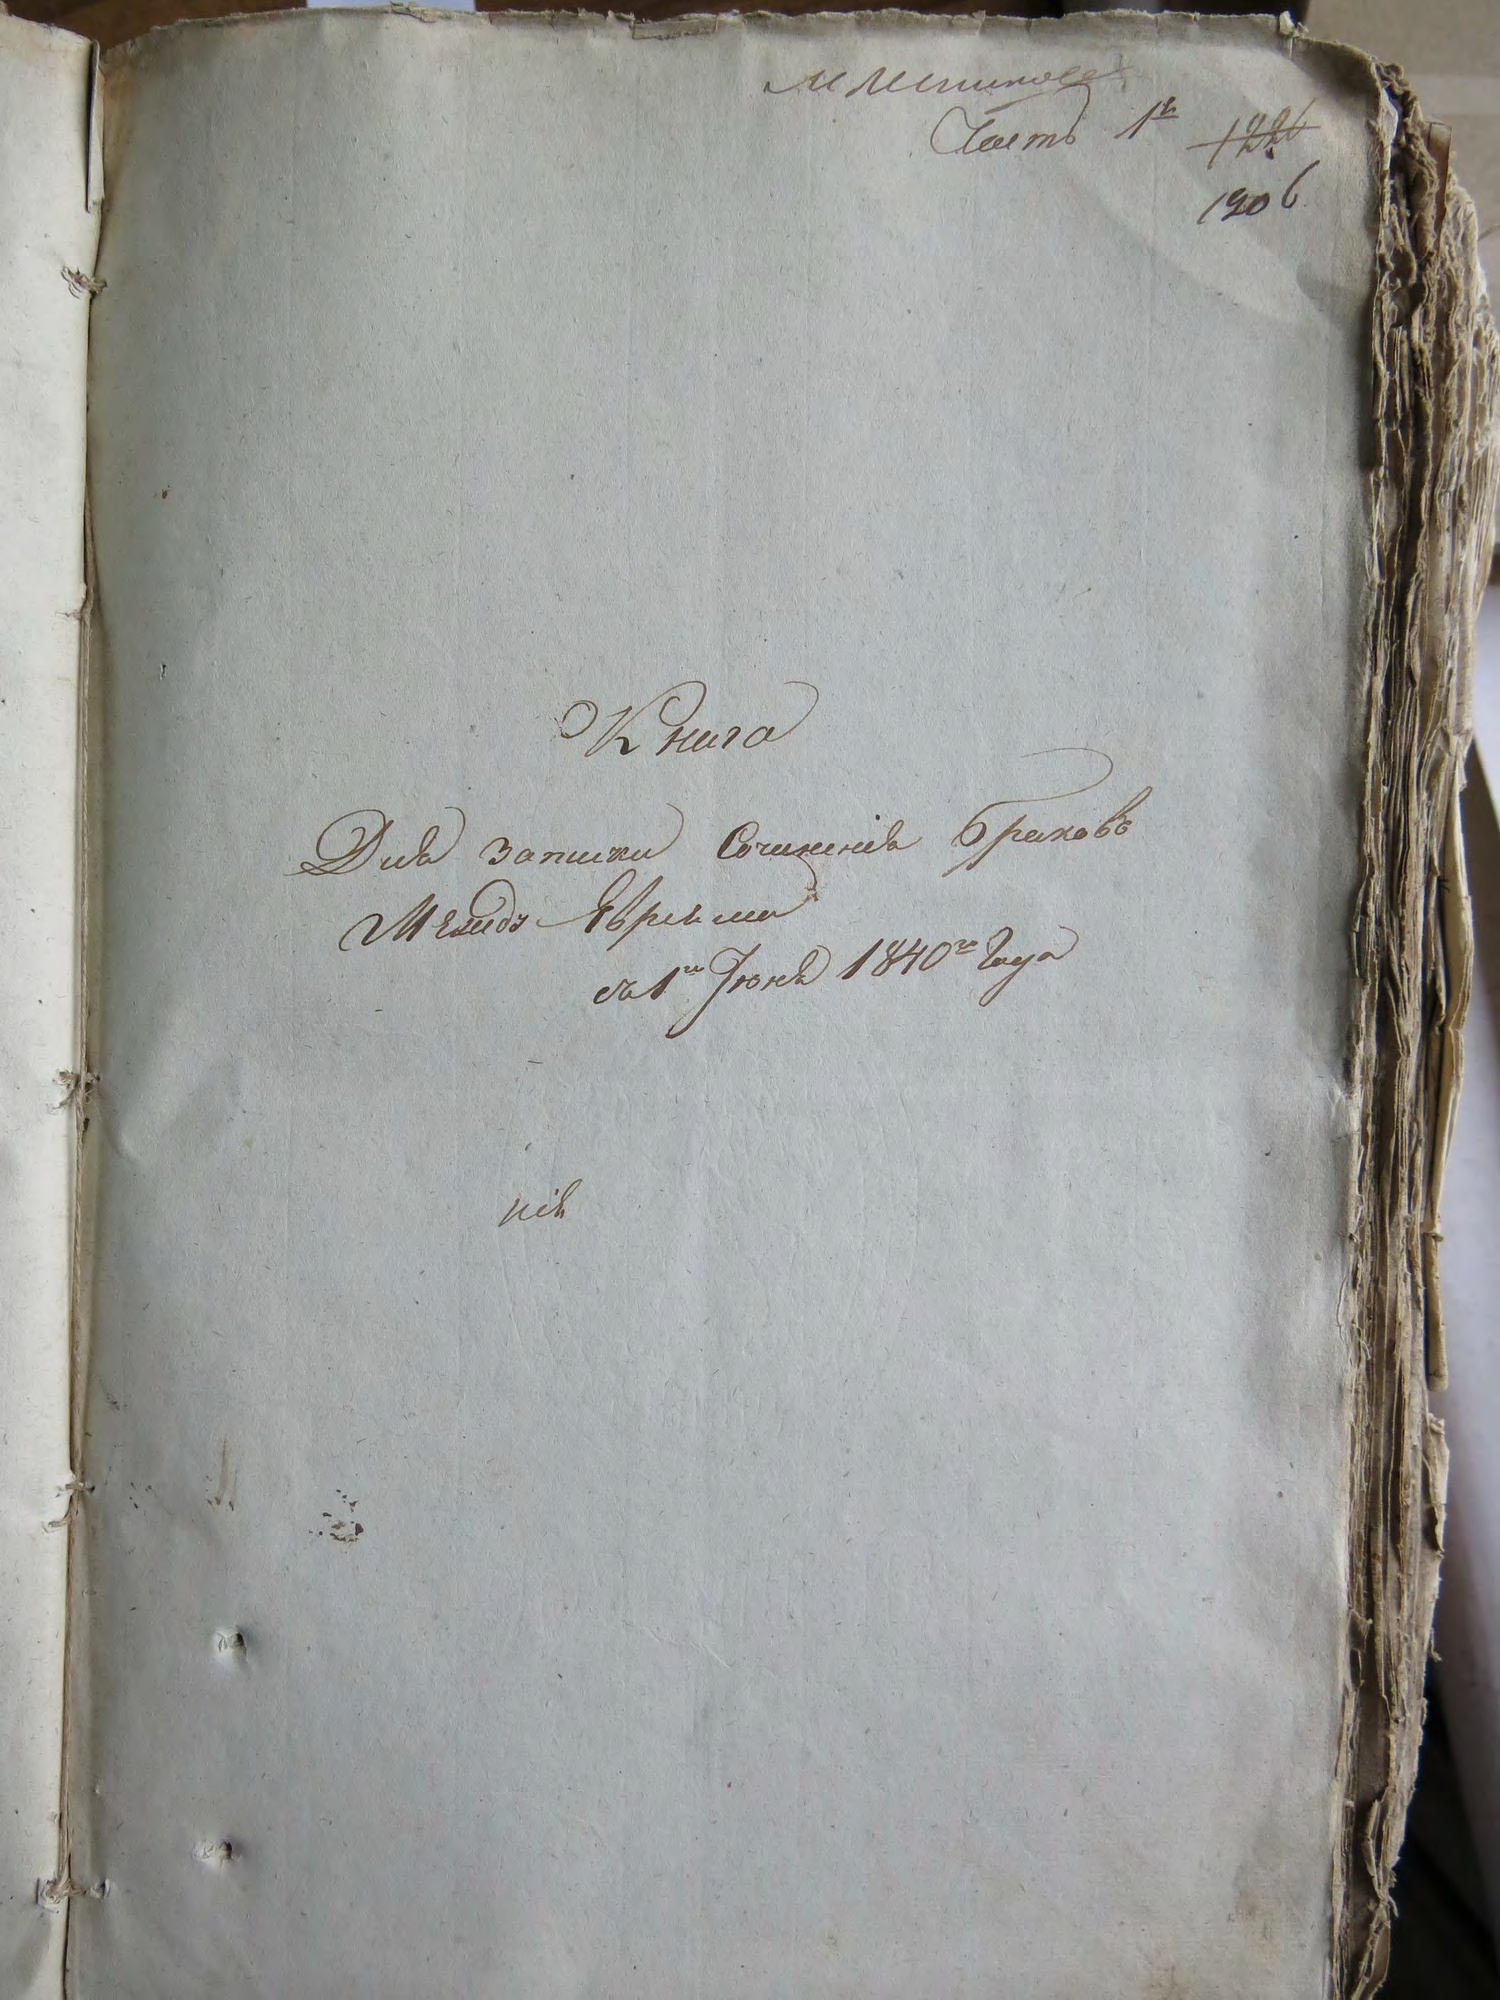 Часть 1я
1226
1906
Книга
Для записки Сочинения браковъ
Между Евреями
съ 1го Іюня 1840го Года
нія